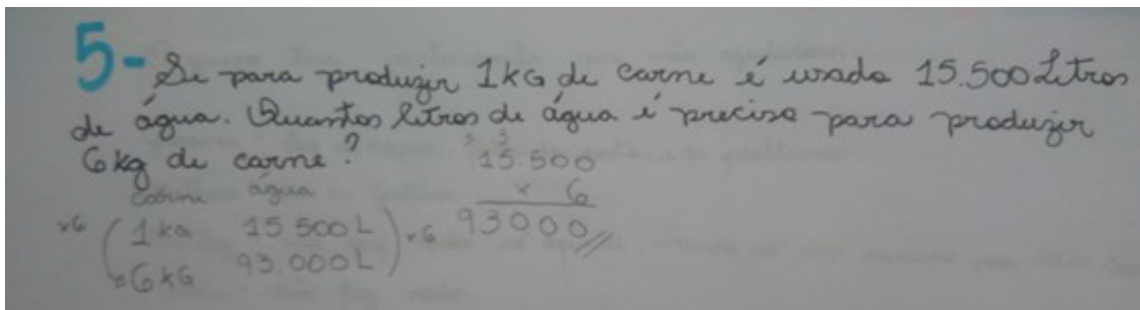 5- Se para produzir 1kG de carne é usada 15.500 Litros
de água. Quantos litros de água é preciso para produzir
6kg de carne?
3 3
15.500
x 6
93000
carne água
x6 1kG 15 500L x6
6kG 93.000L